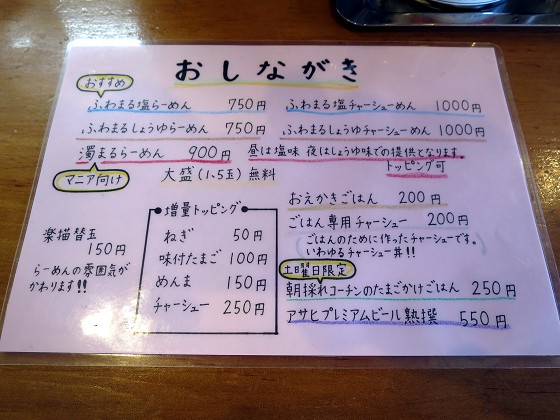 おしながき
おすすめ
ふわまる塩らーめん 750円
ふわまる塩チャーシューめん 1000円
ふわまるしょうゆらーめん 750円
ふわまるしょうゆチャーシューめん 1000円
濁まるらーめん 900円
昼は塩味 夜はしょうゆ味での提供となります。
マニア向け
大盛(1.5玉)無料
トッピング可
楽描替玉
150円
らーめんの雰囲気が
かわります!!
増量トッピング
ねぎ 50円
味付たまご 100円
めんま 150円
チャーシュー 250円
おえかきごはん 200円
ごはん専用チャーシュー 200円
ごはんのために作ったチャーシューです。
いわゆるチャーシュー丼!!
土曜日限定
朝採れコーチンのたまごかけごはん 250円
アサヒプレミアムビール熟撰 550円